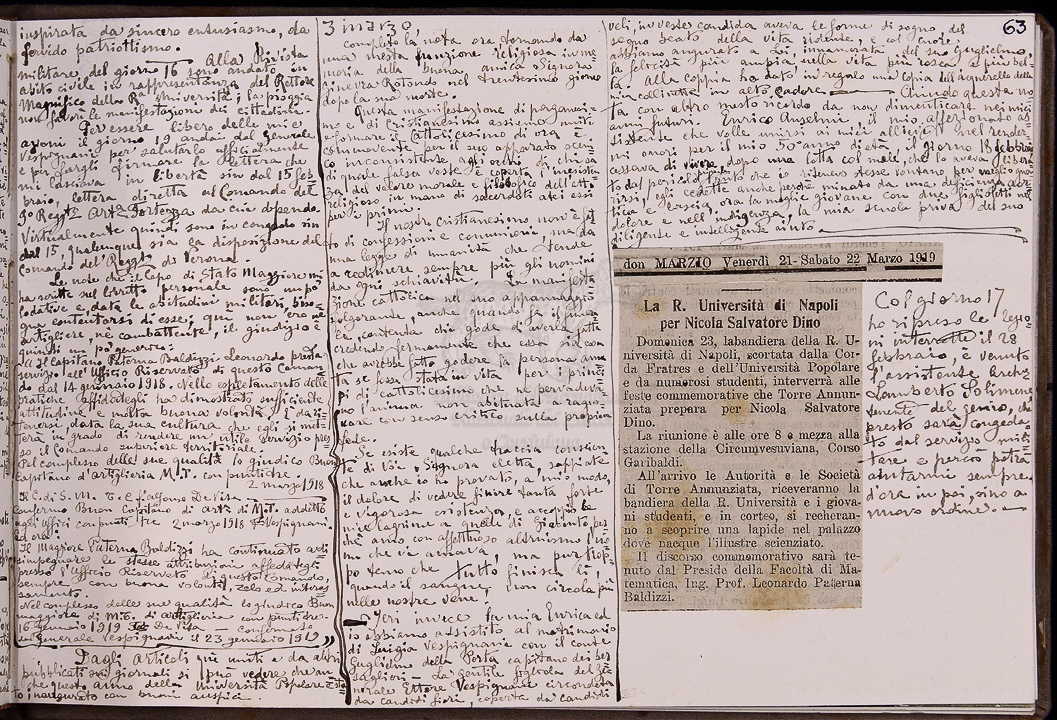 inspirata da sincero entusiasmo, da
fervido patriottismo.
Alla Rivista
militare del giorno 16 sono andato in
abito civile in rappresentanza del Rettore
Magnifico della R. Università; la pioggia
le manifestazioni dei cittadini.
Per essere libero delle mie
azioni il giorno 19 andai dal generale
Vespignani per salutarlo ufficialmente
e per fargli firmare la lettera che
mi lasciava in libertà sin dal 15 feb
braio, lettera diretta al Comando del
Regg. Art. Fortezza da cui dipendo.
Virtualmente quindi sono in congedo sin
dal 15, qualunque sia la disposizione del
Comando del Regg. di Verona.
Le note che il Capo di Stato Maggiore mi
ha scritte sul libretto personale sono un po'
lodative e, data le abitudini militari, biso-
gna contentarsi di esse; que non era nè
artigliere, nè combattente, il giudizio è
quindi un
Il Capitano Paterna Baldizzi Leonardo presta
servizio all'Ufficio Riservato di questo Coman
do dal 14 gennaio 1918. Nello espletamento delle
pratiche affidategli ha dimostrato sufficiente
attitudine e molta buona volontà. È da ri-
tenersi, data la sua cultura che egli si met
terà in grado di rendere un utile servizio pres
so il Comando Carriere territoriale.
Pel complesso delle sue qualità lo giudico Buon
Capitano d'Artiglieria M.T. con punti dieci.
2 marzo 1918
Il C. di S. M. T. C. f. Alfonso De Vita
Confermo Buon Capitano di Art. di M.T. addetto
agli uffici con punti dieci 2 marzo 1918 Vespignani.
Ed ora:
Il Maggiore Paterna Baldizzi ha continuato a di
simpegnare le stesse attribuzioni affidategli
presso l'Ufficio Riservato di questo Comando,
sempre con buona volontà, zelo ed interes
samento.
Nel complesso delle sue qualità lo giudico Buon
maggiore di M.T. d'artiglieria con punti dieci.
16 gennaio 1919 De Vita Confermo
il Generale Vespignani il 23 gennaio 1919
Dagli articoli qui uniti e da altri
pubblicati sui giornali si può vedere che an-
che questo anno della Università Popolare è sta
to inaugurato con buoni auspici.
3 marzo.
Completo la nota ora tornando da
una mesta funzione religiosa in me-
moria della buona amica Signora
Ginevra Rotondo nel trentesimo giorno
dopo la sua morte.
Questa manifestazione di paganesi-
mo e di Cristianesimo assieme uniti
è commovente per il suo apparato sceni
co inconsistente, agli occhi di chi sa
di quale falsa veste è coperta l'inesisten
za del valore morale e filosofico dell'atto
religioso in mano di sacerdoti atei essi
per i primi.
Il nostro Cristianesimo non è fat
to di confessioni e comunioni, ma da
una legge di umanità che tende
a redimere sempre più gli uomini
da ogni schiavitù. La manifesta
zione cattolica nel suo appannaggio
folgorante, anche quando fa il funera
le, contenta chi gode di averla fatta
credendo fermamente che essa sia con
che avesse fatto godere la persona ama
ta se fosse stata in vita per i princì
pi di cattolicesimo che ne pervadeva
no l'anima non abituata a ragio-
nare con senso critico sulla propria
fede.
Se esiste qualche traccia coscien
te di Voi, o Signora eletta, sappiate
che anche io ho provato, a mio modo,
il dolore di vedere finire tanta forte
e vigorosa esistenza, e accoppio le
mie lagrime a quelle di Giacinto, per
che amo con affettuoso altruismo l'uo
mo che vi amava, ma purtrop-
po temo che tutto finisca lì,
quando il sangue non circola più
nelle nostre vene.
Ieri invece la mia Enrica ed
io abbiamo assistito al matrimonio
di Luigia Vespignani con il conte
Guglielmo della Porta capitano dei ber
saglieri. La gentile figliola del ge
nerale Ettore Vespignani circondata
da candidi fiori, coperta da candidi
63
veli, in vesse candida aveva le forme di sogno del
sogno beato della vita ridente, e col cuore
abbiamo augurato a Lei, innamorata del suo Guglielmo,
la felicità più ampia nella vita più rosea e più bel-
la.
Alla coppia ho dato in regalo una copia dell'acquerello della
in collinetta in alto Cadore. Chiudo questa no
ta con altro mesto ricordo da non dimenticare nei miei
anni futuri. Enrico Anselmi, il mio affezionato as
sistente che volle unirsi ai miei allievi nel render-
mi onori per il mio 50° anno di età, il giorno 18 febbraio
cessava di vivere, dopo una lotta col male, che lo aveva libera
to dal pericolo tanto che io ritenevo stesse lontano per meglio gua
rirsi, cedette anche perchè minato da una deficienza
e lascia ora la moglie giovane con due figlioletti nel
dolore e nell'indigenza, la mia scuola priva del suo
diligente e intelligente aiuto.
don MARZIO Venerdì 21-Sabato 22 Marzo 1919
La R. Università di Napoli
per Nicola Salvatore Dino
Domenica 23, labandiera della R. U-
niversità di Napoli, scortata dalla Cor-
da Fratres e dell'Università Popolare
e da numerosi studenti, interverrà alle
feste commemorative che Torre Annun-
ziata prepara per Nicola Salvatore
Dino.
La riunione è alle ore 8 e mezza alla
stazione della Circumvesuviana, Corso
Garibaldi.
All'arrivo le Autorità e le Società
di Torre Annunziata, riceveranno la
bandiera della R. Università e i giova
ni studenti, e in corteo, si recheran-
no a scoprire una lapide nel palazzo
dove nacque l'illustre scienziato.
Il discorso commemorativo sarà te-
nuto dal Preside della Facoltà di Ma-
tematica, Ing. Prof. Leonardo Paterna
Baldizzi.
Col giorno 17
ho ripreso le lezio-
ni interrotte il 28
febbraio, è venuto
l'assistente Arch.
Lamberto Solimene
tenente del genio, che
presto sarà congeda
to dal servizio mili
tare e perciò potrà
aiutarmi sempre
d'ora in poi, sino a
nuovo ordine.